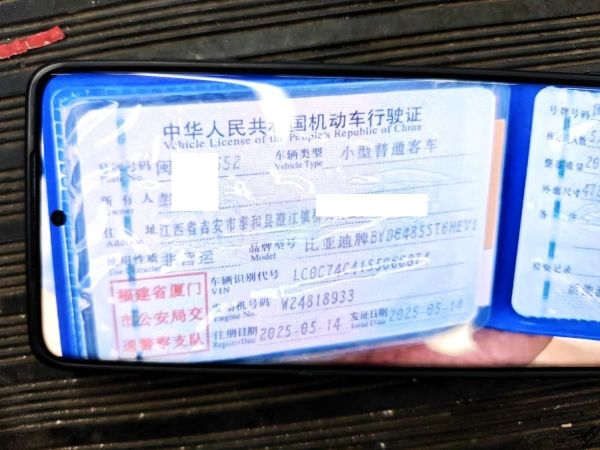 中华人民共和国机动车行驶证
Vehicle License of the People's Republic of China
号牌号码 闽 652 车辆类型 小型普通客车
Plate No. Vehicle Type
所有人 彭
Owner
住址 江西省吉安市泰和县澄江镇
Address
使用性质 非营运 品牌型号 比亚迪牌BYD6485ST6HEV1
Use Character Model
车辆识别代号
VIN
福建省厦门
市公安局交
通警察支队
发动机号码 W24818933
Engine No.
注册日期 2025-05-14 发证日期 2025-05-14
Register Date Issue Date
号牌号码 闽
整备质量 20
外廓尺寸 47
备注
检验记录